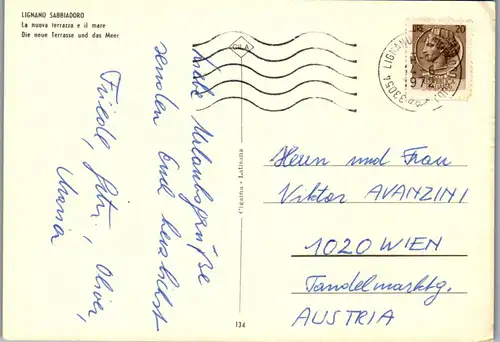 LIGNANO SABBIADORO
La nuova terrazza e il mare
Die neue Terrasse und das Meer
LIRE 20
33054 LIGNANO
972
GILA
Viele Urlaubsgrüße
senden Euch herzlichst
Friedl, Oliver,
Maria
Cigaina - Latisana
134
Herrn und Frau
Viktor AVANZINI
1020 WIEN
Tandelmarktg.
AUSTRIA